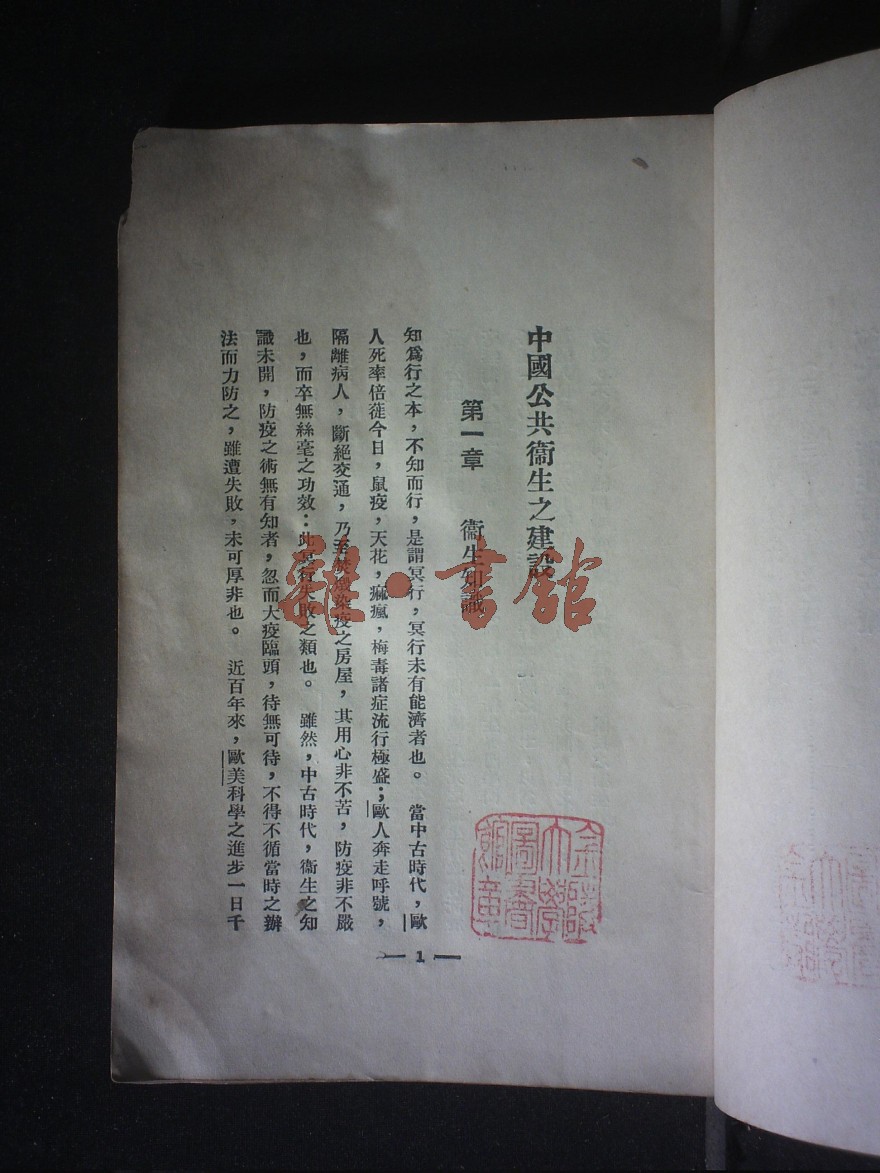 中國公共衞生之建設
第一章　衞生知識
知爲行之本，不知而行，是謂冥行，冥行未有能濟者也。　當中古時代，歐
人死率倍蓰今日，鼠疫，天花，痲瘋，梅毒諸症流行極盛；歐人奔走呼號，
隔離病人，斷絕交通，乃至焚燬染疫之房屋，其用心非不苦，防疫非不嚴
也，而卒無絲毫之功效：此冥行失敗之類也。　雖然，中古時代，衞生之知
識未開，防疫之術無有知者，忽而大疫臨頭，待無可待，不得不循當時之辦
法而力防之，雖遭失敗，未可厚非也。　近百年來，歐美科學之進步一日千
— 1 —
雜·書館
金陵大學圖書館章